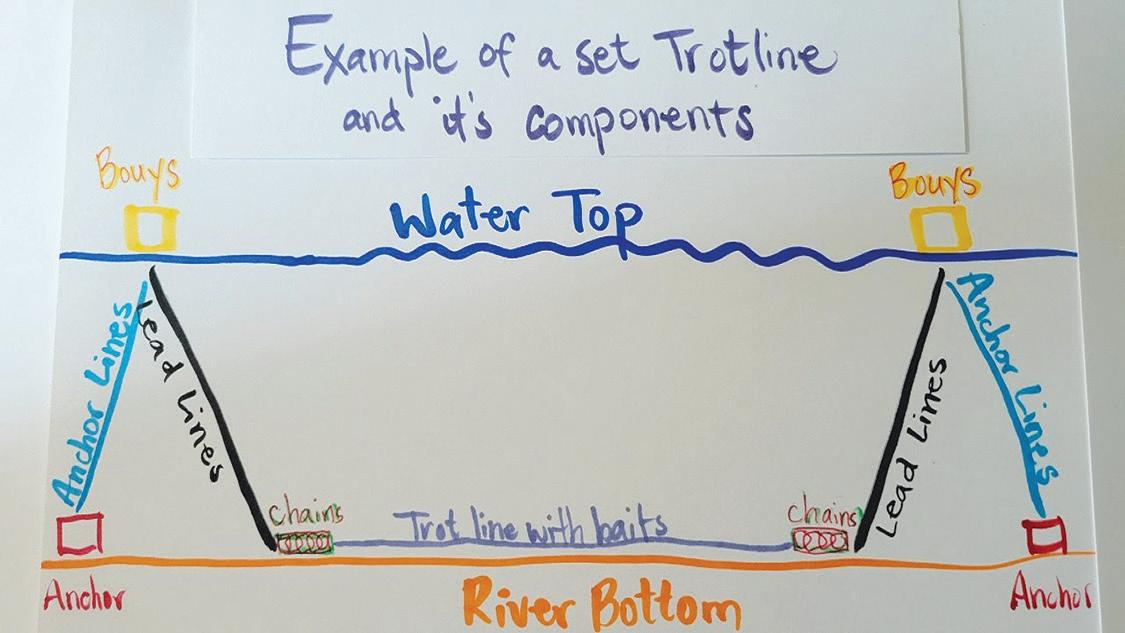 Example of a set Trotline
and it's components
Bouys
Bouys
Water Top
Anchor Lines
Lead Lines
Lead Lines
Anchor Lines
Chains
Trot line with baits
Chains
Anchor
River Bottom
Anchor